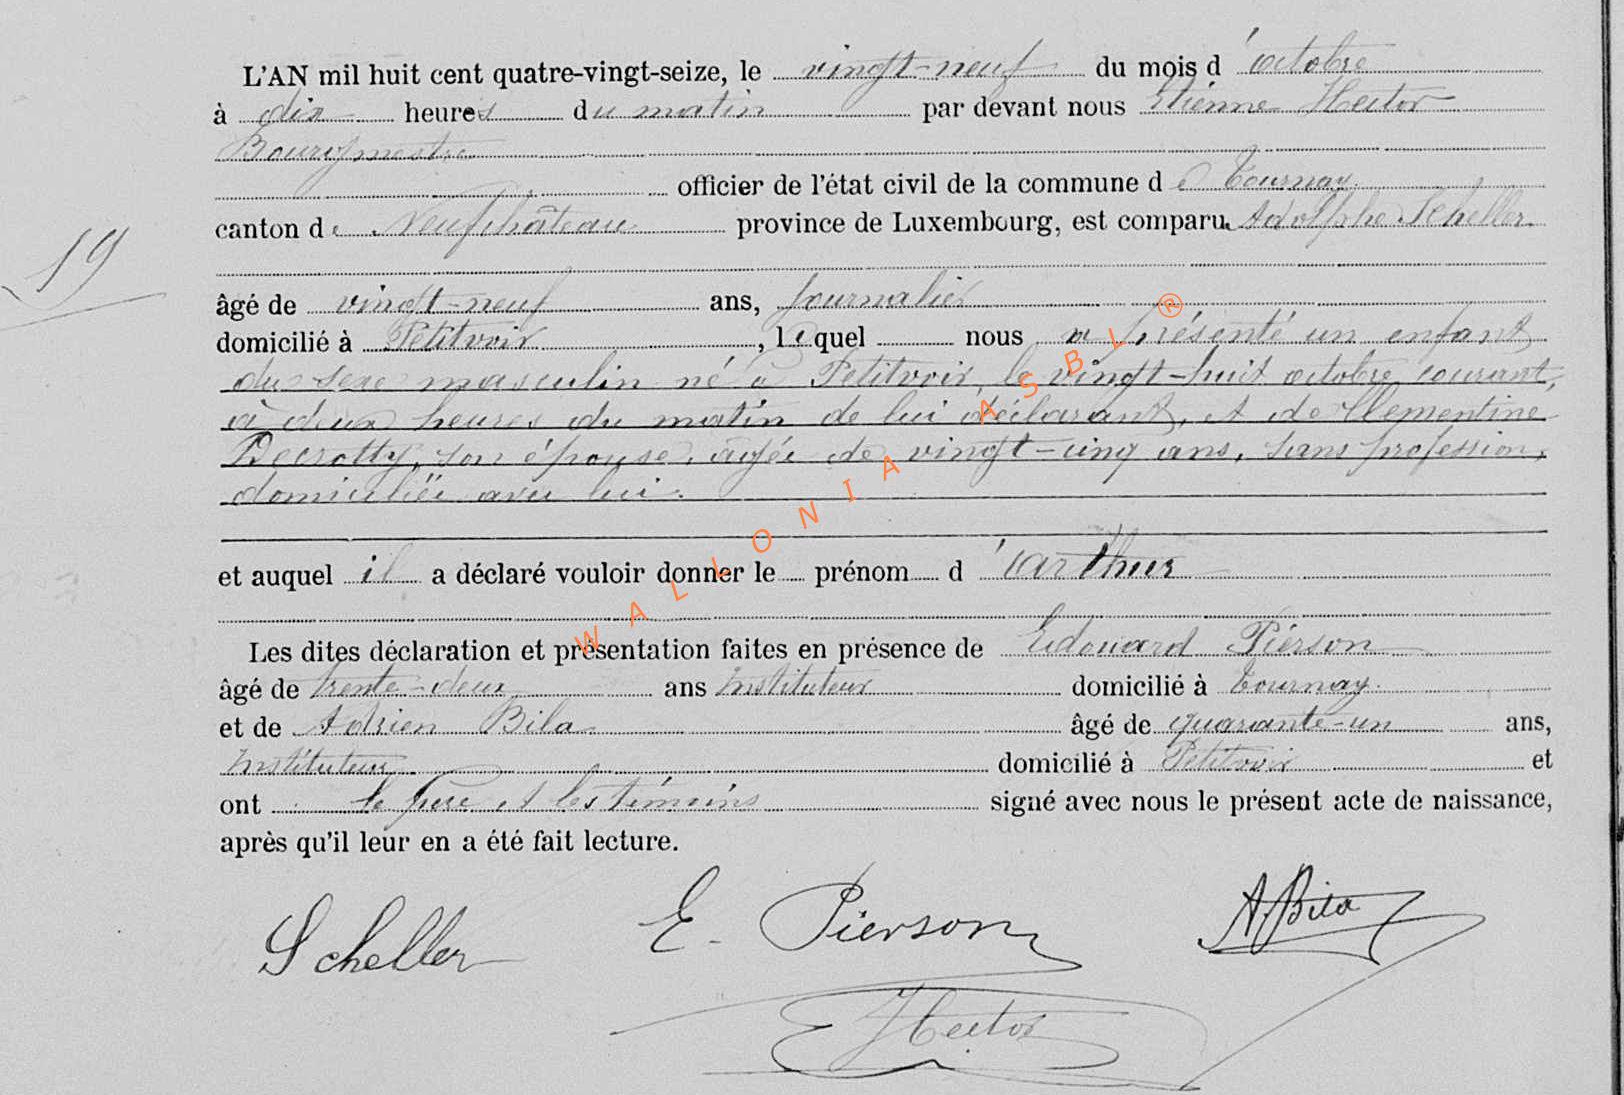 L'AN mil huit cent quatre-vingt-seize, le vingt-neuf du mois d'octobre
à dix heures du matin par devant nous Etienne Hector
Bourgmestre
officier de l'état civil de la commune de Tournay
canton de Neufchâteau province de Luxembourg, est comparu Adolphe Scheller
19
âgé de vingt-neuf ans, journalier
domicilié à Petitvoir, lequel nous a présenté un enfant
du sexe masculin né à Petitvoir, le vingt-huit octobre courant,
à deux heures du matin de lui déclarant, et de Clémentine
Decrotty, son épouse, âgée de vingt-cinq ans, sans profession,
domiciliée avec lui.
et auquel il a déclaré vouloir donner le prénom d'Arthur
Les dites déclaration et présentation faites en présence de Edouard Pierson
âgé de trente-deux ans Instituteur domicilié à Tournay.
et de Adrien Bila âgé de quarante-un ans,
Instituteur domicilié à Petitvoir et
ont le père et les témoins signé avec nous le présent acte de naissance,
après qu'il leur en a été fait lecture.
Scheller E. Pierson A. Bila
Hector
WALLONIA ASBL ®